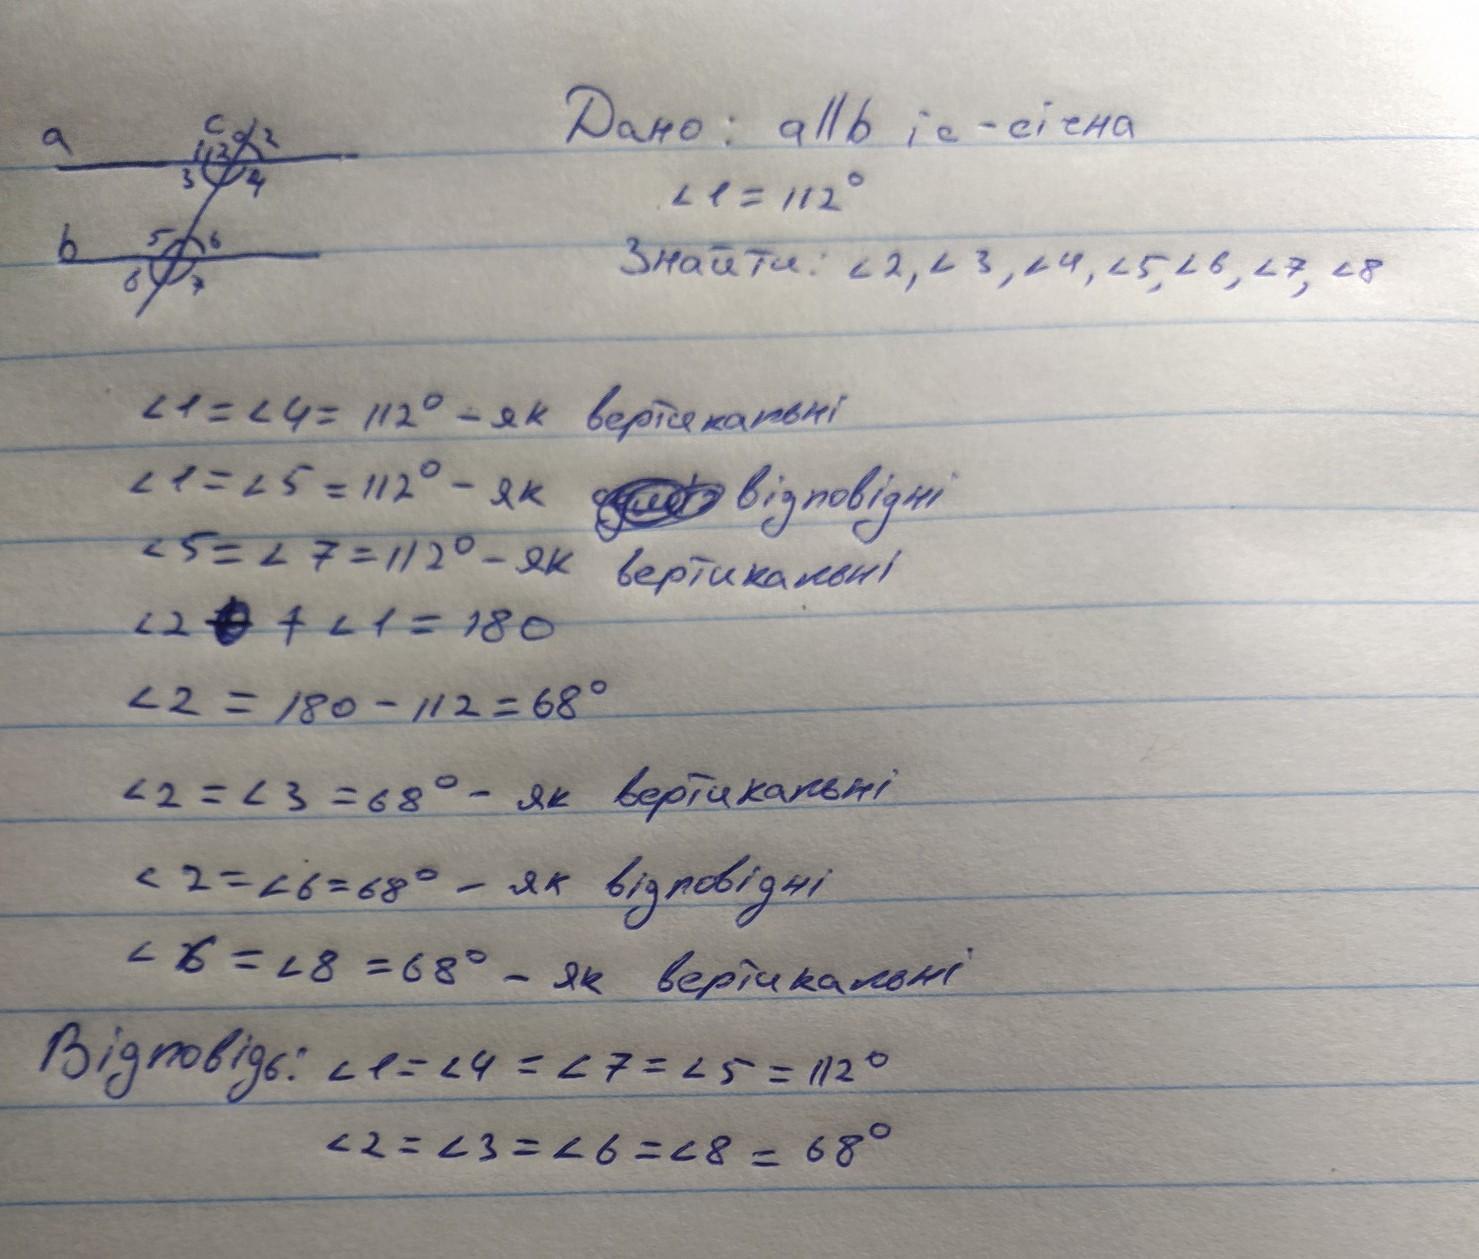 a
c
112° 2
3 4
b
5 6
8 7
Дано: a||b і c - січна
∠1 = 112°
Знайти: ∠2, ∠3, ∠4, ∠5, ∠6, ∠7, ∠8
∠1 = ∠4 = 112° - як вертикальні
∠1 = ∠5 = 112° - як відповідні
∠5 = ∠7 = 112° - як вертикальні
∠2 + ∠1 = 180
∠2 = 180 - 112 = 68°
∠2 = ∠3 = 68° - як вертикальні
∠2 = ∠6 = 68° - як відповідні
∠6 = ∠8 = 68° - як вертикальні
Відповідь: ∠1 = ∠4 = ∠7 = ∠5 = 112°
∠2 = ∠3 = ∠6 = ∠8 = 68°